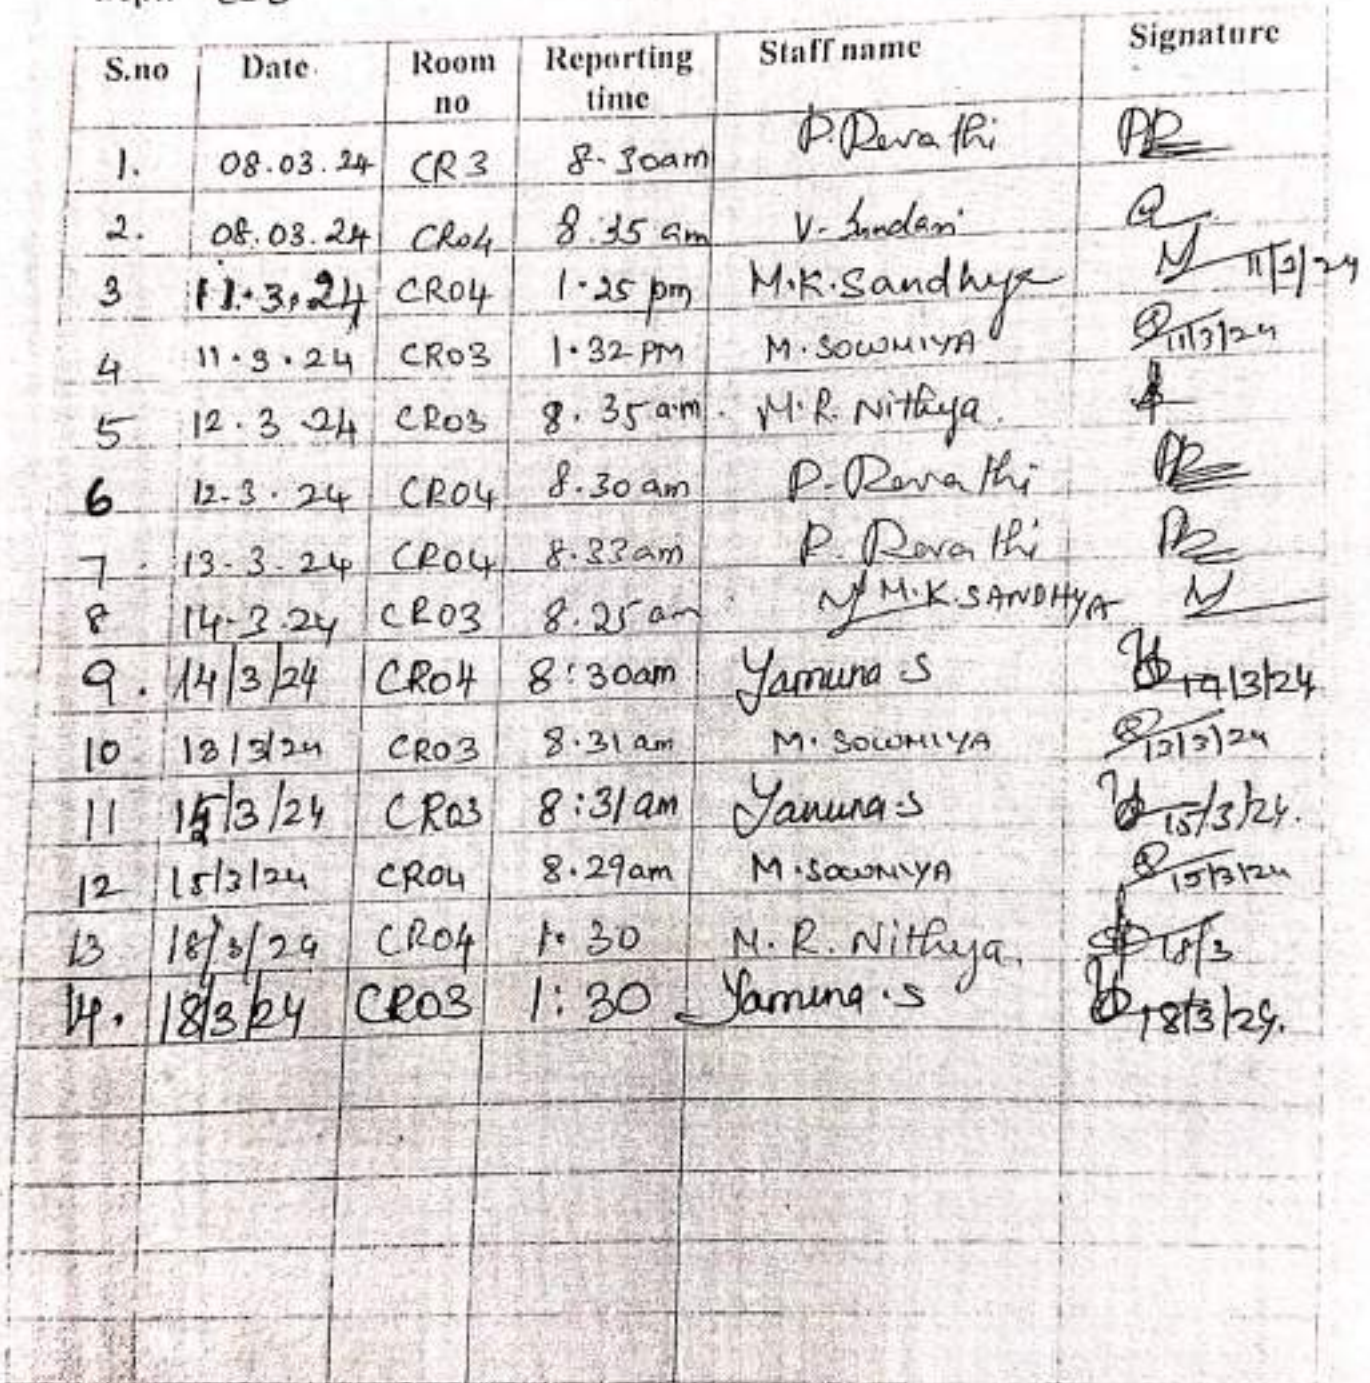 S.no Date Room no Reporting time Staff name Signature
1. 08.03.24 CR3 8.30am P.Revathi
2. 08.03.24 CR04 8.35 am V. Sundari
3 11.3.24 CR04 1.25 pm M.K.Sandhya 11/3/24
4 11.3.24 CR03 1.32 PM M. SOWMIYA 11/3/24
5 12.3.24 CR03 8.35 am. M.R. Nithya.
6 12.3.24 CR04 8.30 am P. Revathi
7. 13.3.24 CR04 8.33 am P. Revathi
8 14.3.24 CR03 8.25 am M.K.SANDHYA
9. 14/3/24 CR04 8:30am Yamuna S 14/3/24
10 13/3/24 CR03 8.31 am M. SOWMIYA 13/3/24
11 15/3/24 CR03 8:31am Yamuna S 15/3/24.
12 15/3/24 CR04 8.29am M.SOWMIYA 15/3/24
13 18/3/24 CR04 1:30 M.R. Nithya. 18/3
14. 18/3/24 CR03 1:30 Yamuna .S 18/3/24.